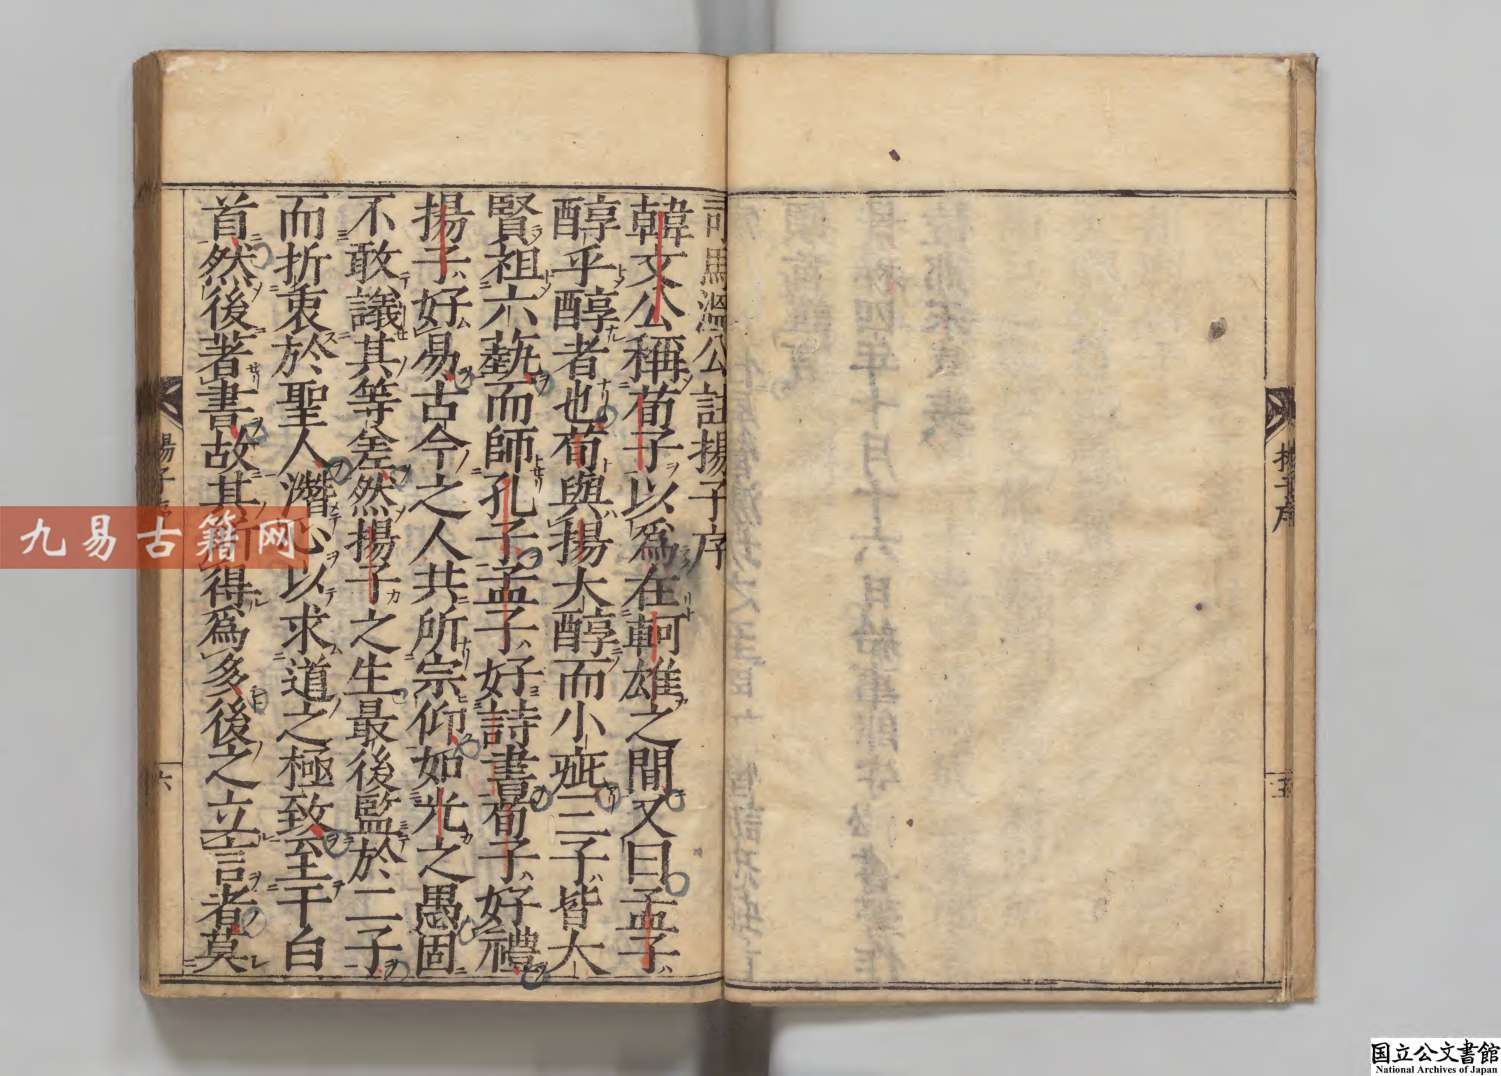 揚子序
五
司馬溫公註揚子序
韓文公稱荀子以爲在軻雄之間又曰孟子
醇乎醇者也荀與揚大醇而小疵三子皆大
賢祖六藝而師孔子孟子好詩書荀子好禮
揚子好易古今之人共所宗仰如光之愚固
不敢議其等差然揚子之生最後監於二子
而折衷於聖人潛心以求道之極致至于白
首然後著書故其所得爲多後之立言者莫
揚子序
六
九易古籍网
国立公文書館
National Archives of Japan